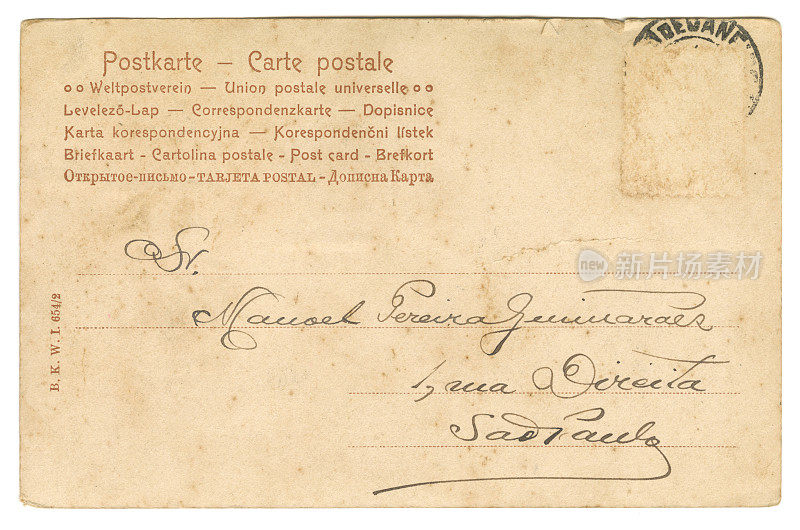 Postkarte – Carte postale
Weltpostverein — Union postale universelle
Levelező-Lap — Correspondenzkarte — Dopisnice
Karta korespondencyjna — Korespondenčni lístek
Briefkaart - Cartolina postale - Post card - Brefkort
Открытое-письмо - TARJETA POSTAL - Дописна Карта
Sr.
Manoel Pereira Guimarães
1, rua Direita
São Paulo
B. K. W. I. 654/2
new 新片场素材